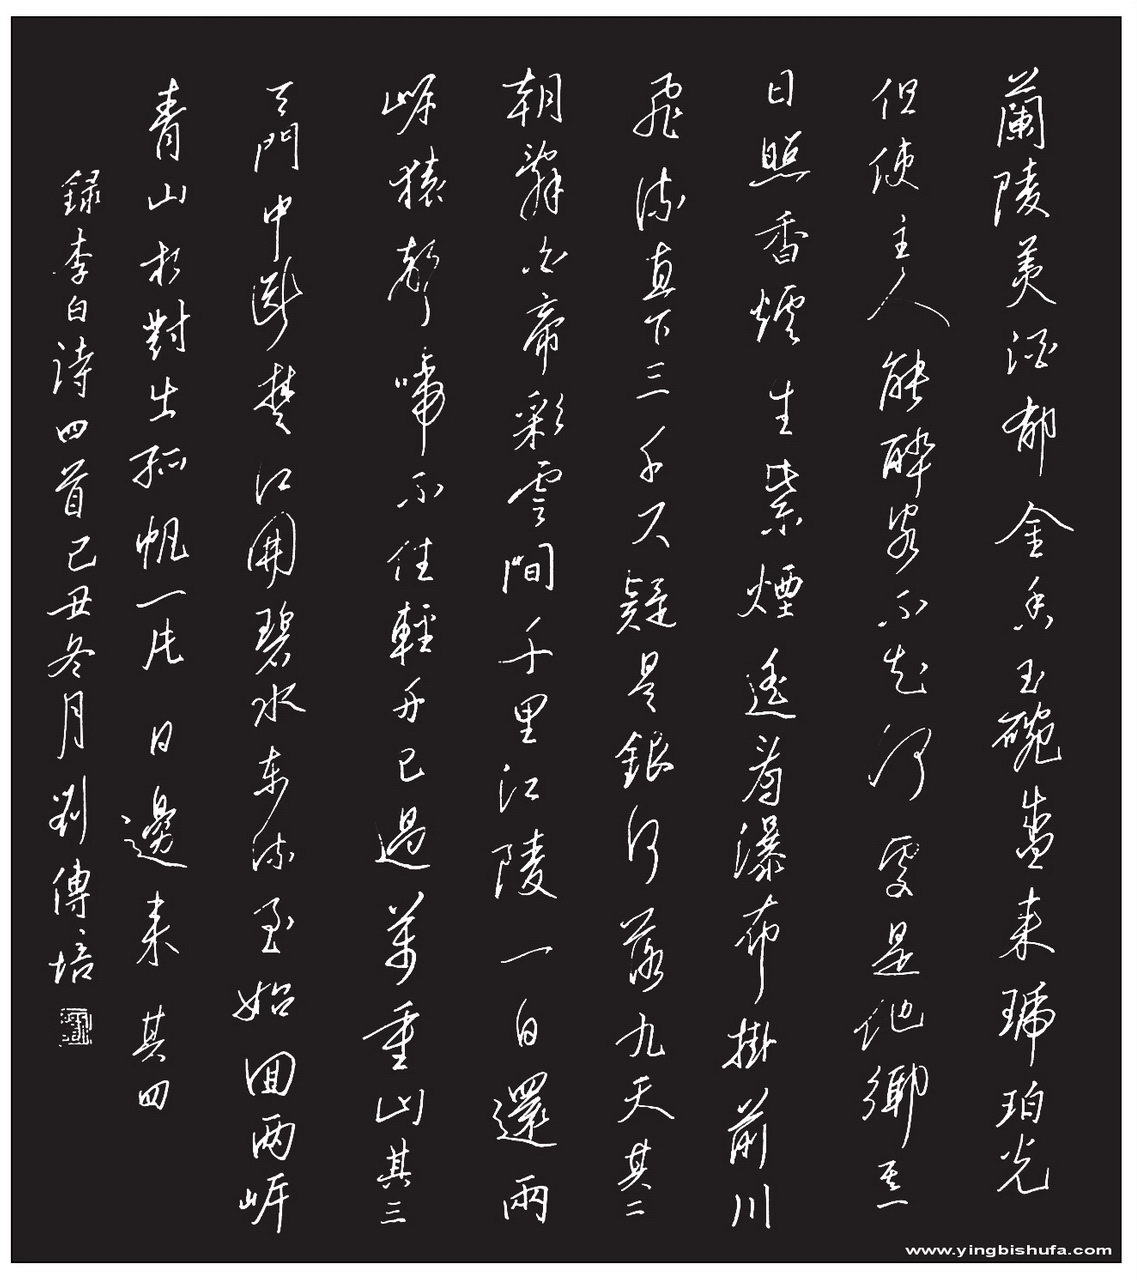 蘭陵美酒郁金香玉碗盛来琥珀光
但使主人能醉客不知何處是他鄉其一
日照香爐生紫煙遙看瀑布掛前川
飛流直下三千尺疑是銀河落九天其二
朝辭白帝彩雲間千里江陵一日還兩
岸猿聲啼不住輕舟已過萬重山其三
天門中斷楚江開碧水东流至始回两岸
青山相對出孤帆一片日邊来其四
録李白詩四首己丑冬月劉傳培
www.yingbishufa.com